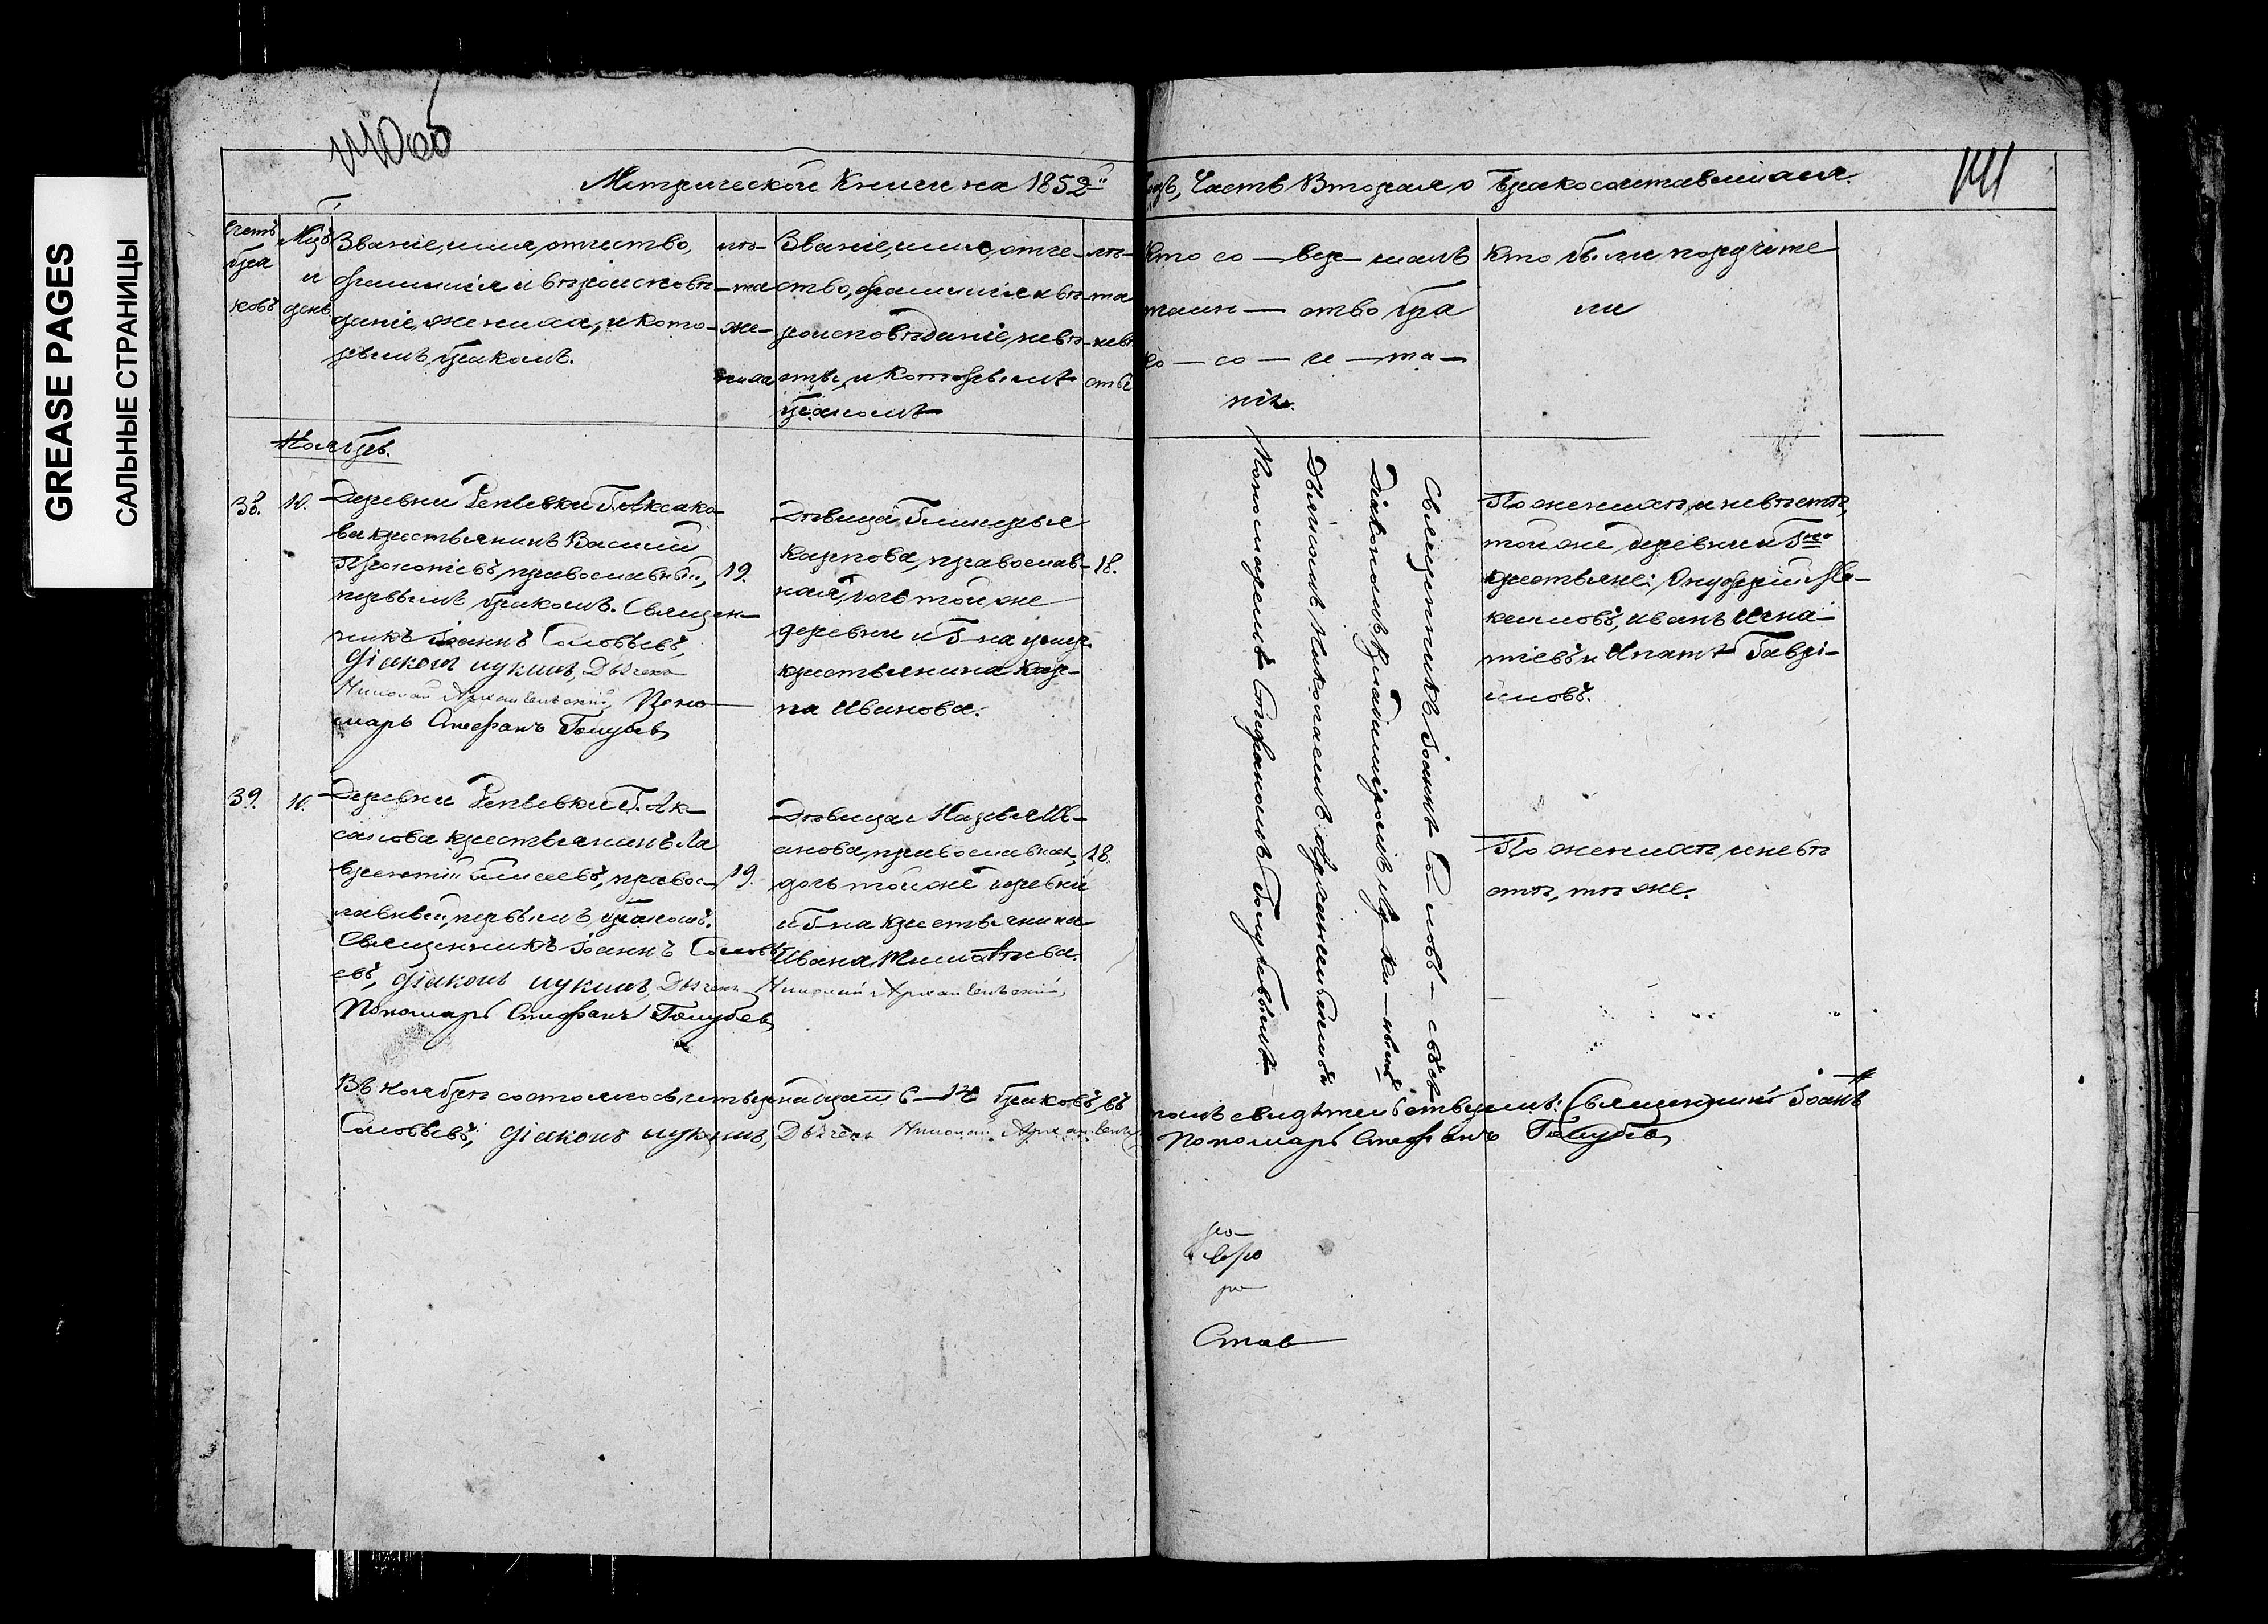 GREASE PAGES
САЛЬНЫЕ СТРАНИЦЫ
141
Метрической Книги на 1852й
Годъ, Часть Вторая о бракосочетавшихся.
Счетъ
бра
ковъ
Мцъ
и
день
Званіе, имя, отчество,
фамилія и вѣроисповѣ-
даніе, жениха, и кото-
рымъ бракомъ.
лѣ-
та
же-
ниха
Званіе, имя, отче-
ство, фамилія и вѣ-
роисповѣданіе, невѣ-
сты, и которымъ
бракомъ
лѣ-
та
невѣ
сты
Кто со — вер — шалъ
таин — ство бра
ко — со — че — та —
нія.
Кто были поручите
ли
Ноябрь.
38.
10.
Деревни Репьевки Г. Аксако-
ва крестьянинъ Василій
Прокопіевъ, православный,
первымъ бракомъ. Священ-
никъ Іоаннъ Соловьевъ,
Діаконъ Лукинъ, Дьячекъ
Николай Архангельскій, Поно-
марь Стефанъ Голубев
19.
Дѣвица Гликерья
Карпова, православ-
ная, дочь той же
деревни и Г-на
крестьянина Кар-
па Иванова.
18.
Священникъ Іоаннъ Со — ловь — евъ съ
Діакономъ Владиміромъ Лу — ки — нымъ
Дьячкомъ Николаемъ Архангельскимъ и
Пономаремъ Стефаномъ Голубевымъ
По женихѣ, и невѣстѣ,
той же деревни и Г-на
крестьяне: Онуфрій Ма-
кеимовъ, Иванъ Игна-
тіевъ и Ипатъ Гаврі-
иловъ.
39.
10.
Деревни Репьевки Г. Ак-
сакова крестьянинъ Ла
врентій православ-
лавный, первымъ бракомъ.
Священникъ Іоаннъ Соловь
евъ, Діаконъ Лукинъ, Дьячекъ Николай Архангельскій,
Пономарь Стефанъ Голубев
19.
Дѣвица Марья Ив-
анова, православная,
дочь той же деревни
и Г-на крестьянина
Ивана Тимофѣева.
18.
По женихѣ, и невѣ
стѣ, тѣ же.
Въ Ноябрѣ состоялось четырнадцать — 14 браковъ въ
томъ свидѣтельствуемъ: Священникъ Іоаннъ
Соловьевъ, Діаконъ Лукинъ, Дьячекъ Николай Архангельскій
Пономарь Стефанъ Голубев
ро
Став